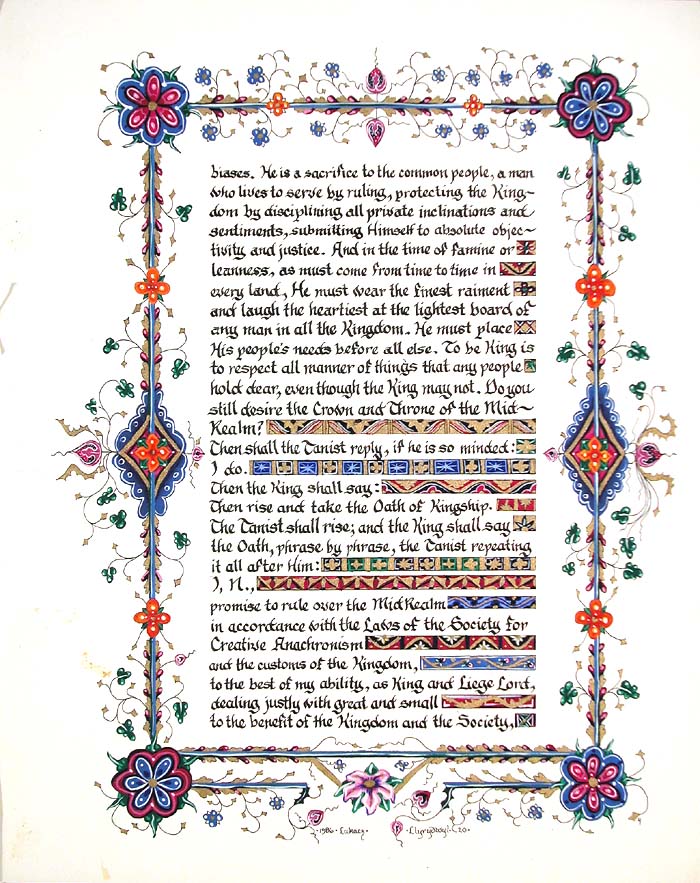 biases. He is a sacrifice to the common people, a man
who lives to serve by ruling, protecting the King~
dom by disciplining all private inclinations and
sentiments, submitting Himself to absolute objec~
tivity and justice. And in the time of famine or
leanness, as must come from time to time in
every land, He must wear the finest raiment
and laugh the heartiest at the lightest board of
any man in all the Kingdom. He must place
His people's needs before all else. To be King is
to respect all manner of things that any people
hold dear, even though the King may not. Do you
still desire the Crown and Throne of the Mid~
Realm?
Then shall the Tanist reply, if he is so minded:
I do.
Then the King shall say:
Then rise and take the Oath of Kingship.
The Tanist shall rise; and the King shall say
the Oath, phrase by phrase, the Tanist repeating
it all after Him:
I, N.,
promise to rule over the MidRealm
in accordance with the Laws of the Society for
Creative Anachronism
and the customs of the Kingdom,
to the best of my ability, as King and Liege Lord,
dealing justly with great and small
to the benefit of the Kingdom and the Society,
·1986·